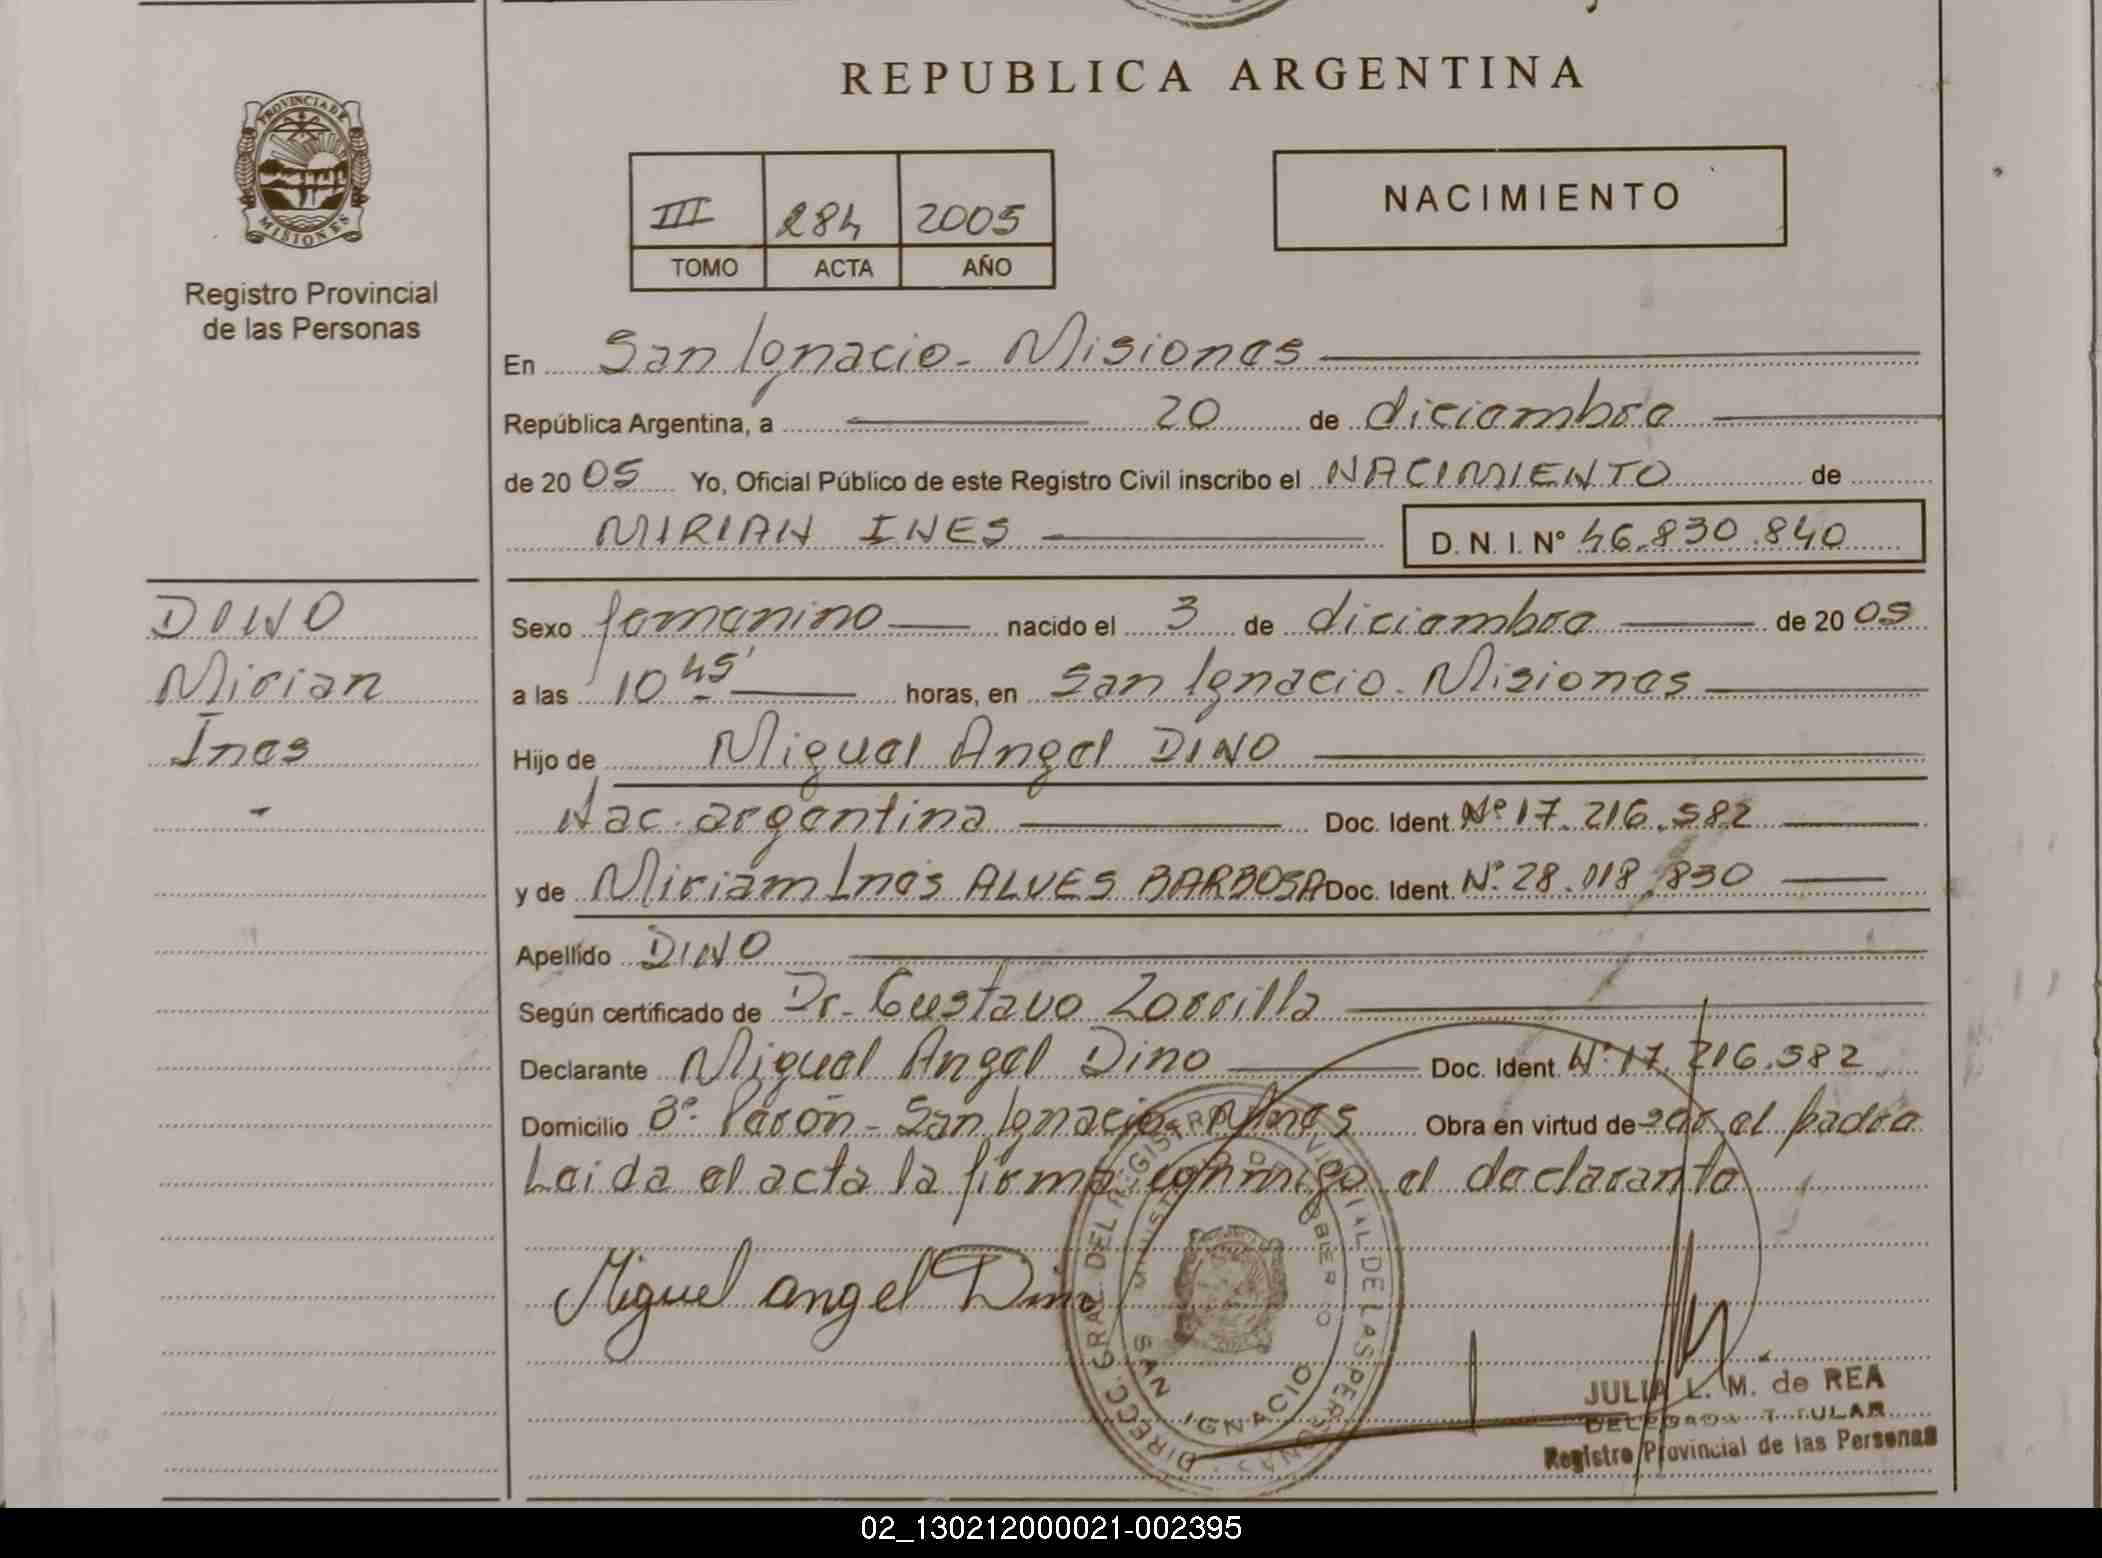 REPUBLICA ARGENTINA
PROVINCIA DE MISIONES
Registro Provincial
de las Personas
III 284 2005
TOMO ACTA AÑO
NACIMIENTO
En San Ignacio - Misiones
República Argentina, a 20 de diciembre
de 20 05 Yo, Oficial Público de este Registro Civil inscribo el NACIMIENTO de
MIRIAN INES D. N. I. N° 46.830.840
DINO
Mirian
Ines
-
Sexo femenino nacido el 3 de diciembre de 20 05
a las 10 45' horas, en San Ignacio. Misiones
Hijo de Miguel Angel DINO
Nac. argentina Doc. Ident. Nº 17.216.582
y de Miriam Inés ALVES BARBOSA Doc. Ident. Nº. 28.018.830
Apellido DINO
Según certificado de Dr. Gustavo Zorrilla
Declarante Miguel Angel Dino Doc. Ident. Nº. 17.216.582
Domicilio Bº. Perón - San Ignacio - Mnes Obra en virtud de ser el padre
Leida el acta la firma conmigo el declarante
Miguel angel Dino
DIRECC. GRAL DEL REGISTRO PROVINCIAL DE LAS PERSONAS
MINISTERIO DE GOBIERNO
SAN IGNACIO
JULIA L. M. de REA
DELEGADA TITULAR
Registro Provincial de las Personas
02_130212000021-002395